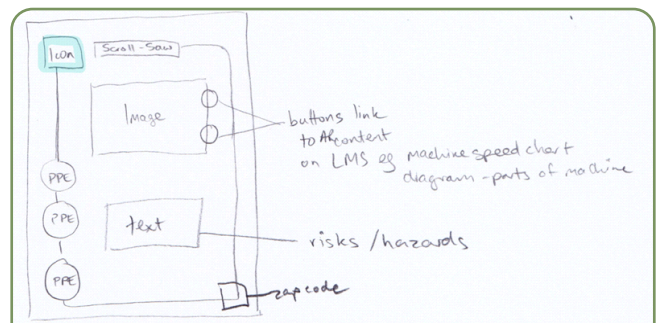 Icon
Scroll-Saw
Image
buttons link
to AR content
on LMS eg machine speed chart
diagram - parts of machine
PPE
PPE
PPE
text
risks / hazards
zapcode